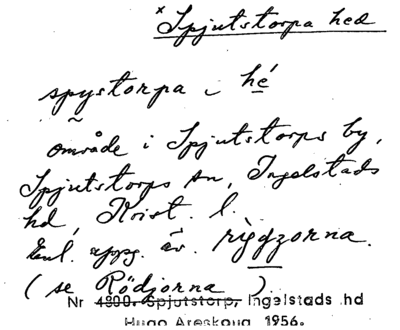 x Spjutstorpa hed
spystorpa hé
område i Spjutstorps by,
Spjutstorps sn, Ingelstads
hd, Krist. l.
Enl. uppg. äv. riedzorna.
(se Rödjorna)
Nr 4800. Spjutstorp, Ingelstads hd
Hugo Areskoug 1956.